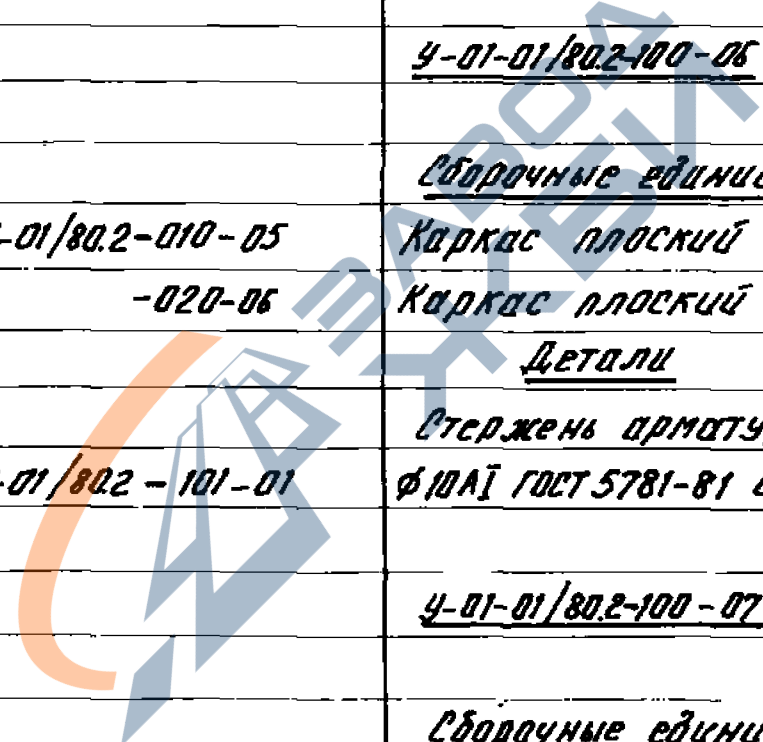 У-01-01/80.2-100-06
Сборочные едини
-01/80.2-010-05 Каркас плоский
-020-06 Каркас плоский
Детали
Стержень армату
-01/80.2-101-01 ф10АI ГОСТ 5781-81
У-01-01/80.2-100-07
Сборочные едини
ЗАВОД
ЖБИ